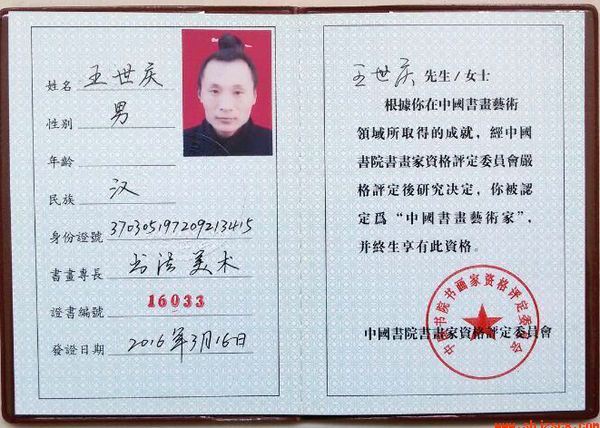 姓名 王世庆
性别 男
年龄
民族 汉
身份證號 370305197209213415
書畫專長 书法 美术
證書編號 16033
發證日期 2016年3月16日
王世庆 先生/女士
根據你在中國書畫藝術
領域所取得的成就，經中國
書院書畫家資格評定委員會嚴
格評定後研究決定，你被認
定爲“中國書畫藝術家”，
并終生享有此資格。
中国书院书画家资格评定委员会
中國書院書畫家資格評定委員會